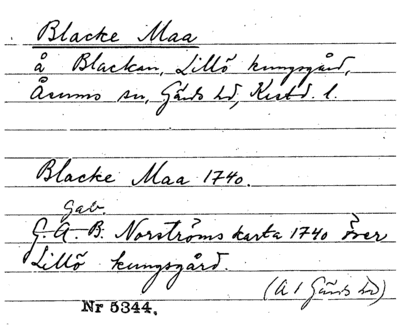 Blacke Maa
å Blackan, Lillö kungsgård,
Åsums sn, Gärds hd, Krist. l.
Blacke Maa 1740.
Gab.
G. A. B. Norströms karta 1740 över
Lillö kungsgård.
(A 1 Gärds hd)
Nr 5344.